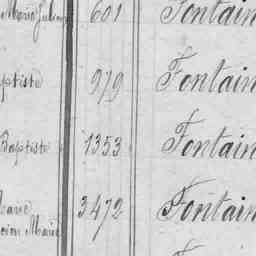 Marie Julie 601 Fontain
ptiste 979 Fontain
Baptiste 1353 Fontain
Marie
3472 Fontain
Marie